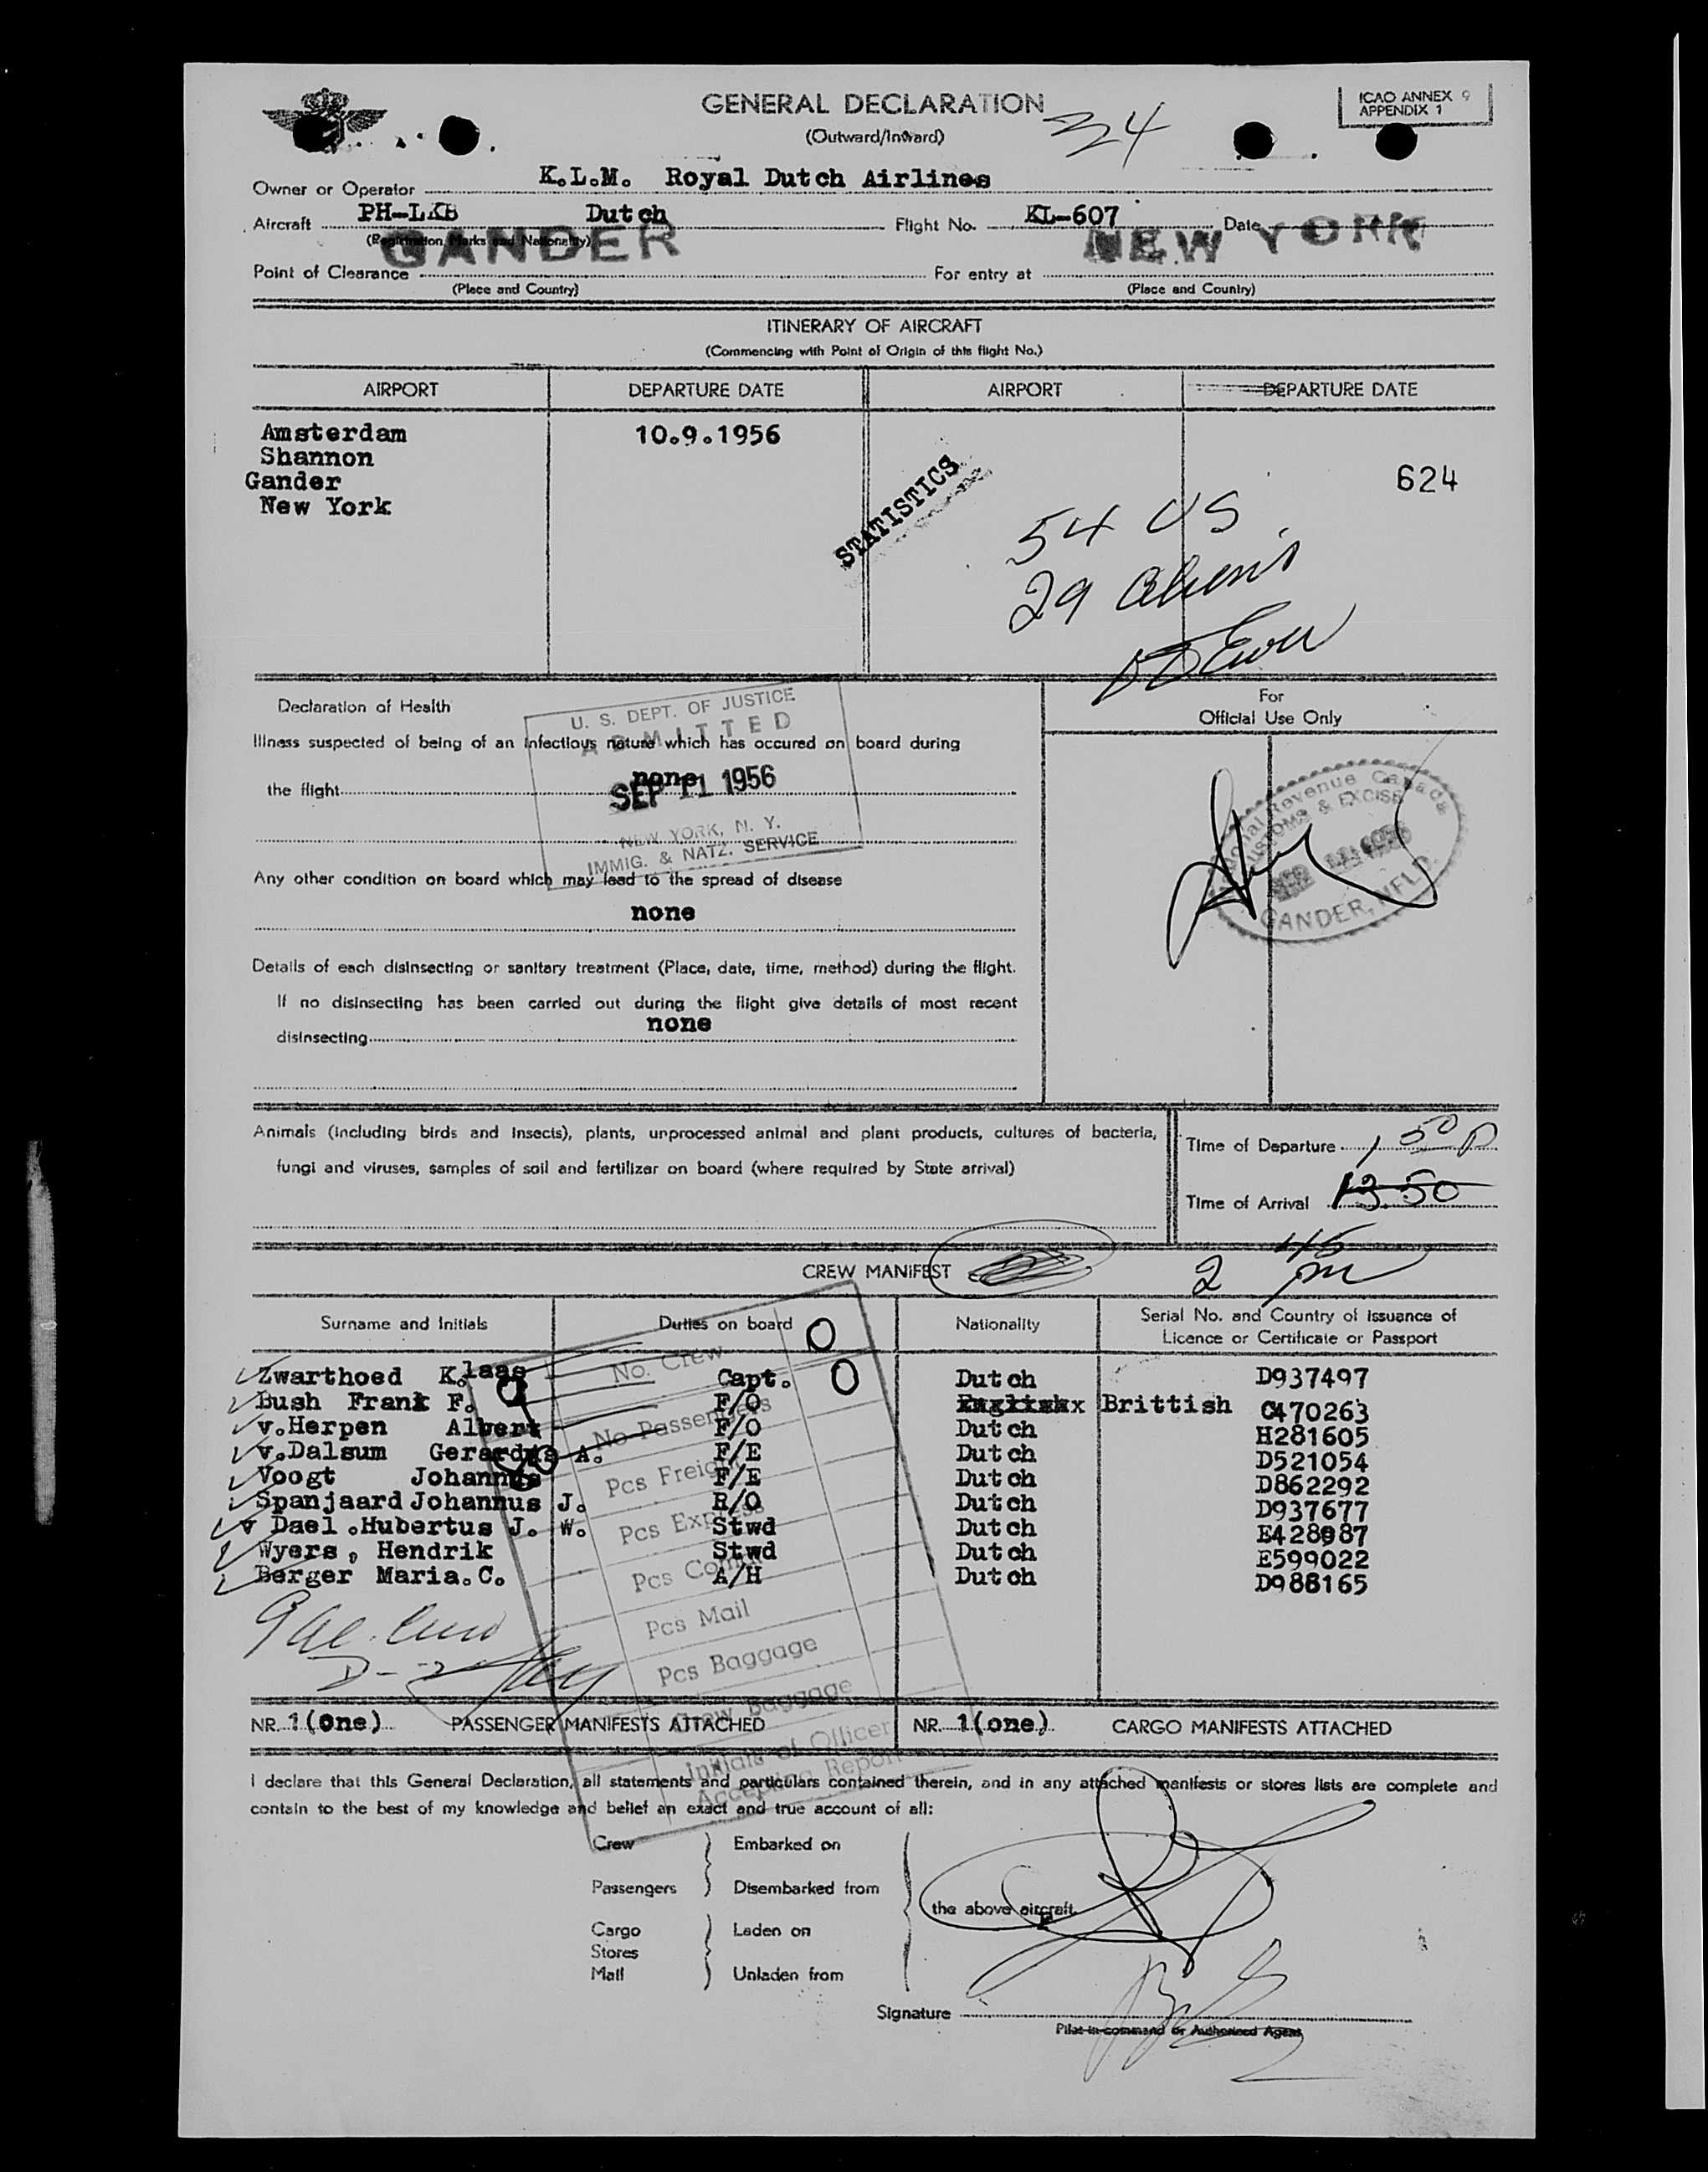 GENERAL DECLARATION
(Outward/Inward)
ICAO ANNEX 9
APPENDIX 1
Owner or Operator K.L.M. Royal Dutch Airlines
Aircraft PH-LKB Dutch Flight No. KL-607 Date
(Registration Marks and Nationality)
GANDER NEW YORK
Point of Clearance For entry at
(Place and Country) (Place and Country)
ITINERARY OF AIRCRAFT
(Commencing with Point of Origin of this flight No.)
AIRPORT DEPARTURE DATE AIRPORT DEPARTURE DATE
Amsterdam 10.9.1956
Shannon
Gander 624
New York
STATISTICS
54 US
29 Aliens
Declaration of Health
For
Official Use Only
U. S. DEPT. OF JUSTICE
ADMITTED
Illness suspected of being of an infectious nature which has occured on board during
the flight none
SEP 11 1956
NEW YORK, N. Y.
IMMIG. & NATZ. SERVICE
National Revenue Canada
CUSTOMS & EXCISE
GANDER, NFLD.
Any other condition on board which may lead to the spread of disease
none
Details of each disinsecting or sanitary treatment (Place, date, time, method) during the flight.
If no disinsecting has been carried out during the flight give details of most recent
disinsecting none
Animals (including birds and insects), plants, unprocessed animal and plant products, cultures of bacteria,
fungi and viruses, samples of soil and fertilizer on board (where required by State arrival)
Time of Departure 1 50 p
Time of Arrival 13.50
2 45 pm
CREW MANIFEST
Surname and Initials Duties on board Nationality Serial No. and Country of Issuance of
Licence or Certificate or Passport
Zwarthoed K.laas Capt. Dutch D937497
Bush Frank F. F/O Brittish C470263
v.Herpen Albert F/O Dutch H281605
v.Dalsum Gerardus A. F/E Dutch D521054
Voogt Johannus F/E Dutch D862292
Spanjaard Johannus J. R/O Dutch D937677
v Dael .Hubertus J. W. Stwd Dutch E428987
Wyers, Hendrik Stwd Dutch E599022
Berger Maria.C. A/H Dutch D988165
No. Crew 0
No Passengers 0
Pcs Freight
Pcs Express
Pcs Comat
Pcs Mail
Pcs Baggage
Crew Baggage
Initials of Officer
Accepting Report
NR. 1(one) PASSENGER MANIFESTS ATTACHED NR. 1(one) CARGO MANIFESTS ATTACHED
I declare that this General Declaration, all statements and particulars contained therein, and in any attached manifests or stores lists are complete and
contain to the best of my knowledge and belief an exact and true account of all:
Crew Embarked on
Passengers Disembarked from
the above aircraft.
Cargo Laden on
Stores
Mail Unladen from
Signature
Pilot-in-command or Authorized Agent